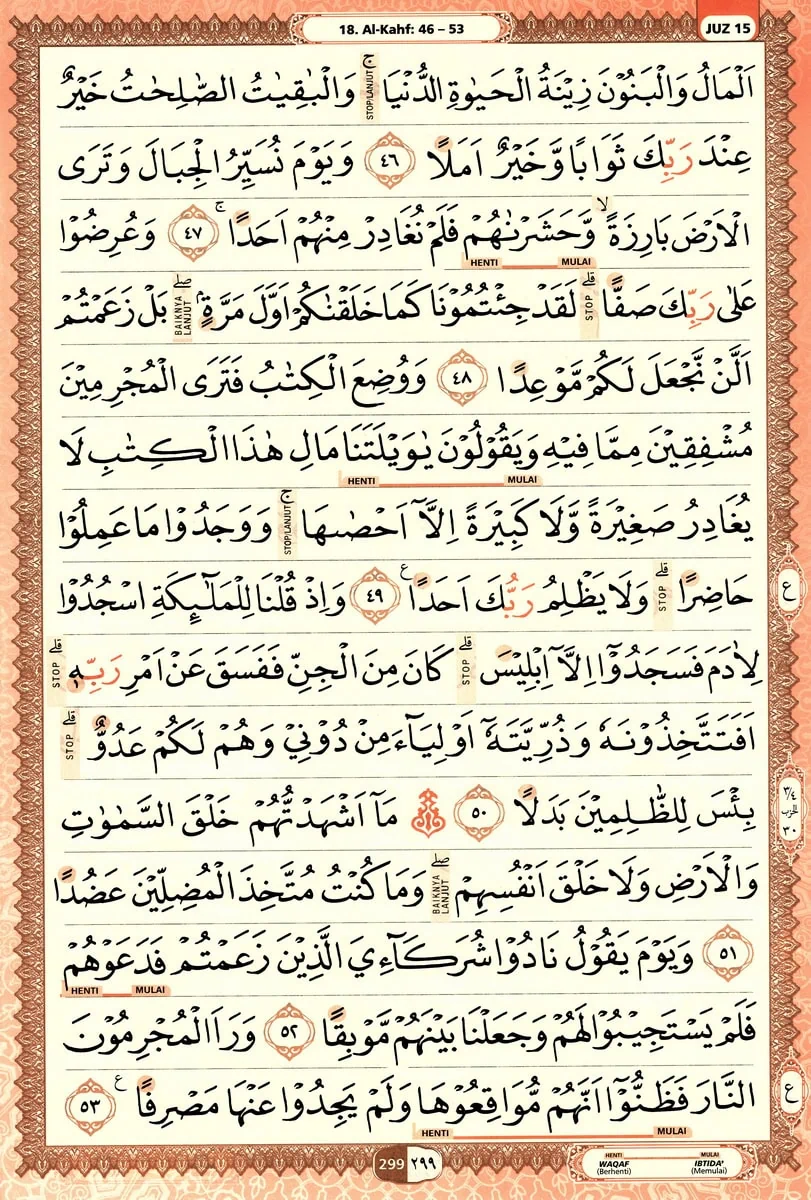 18. Al-Kahf: 46 – 53
JUZ 15
اَلْمَالُ وَالْبَنُوْنَ زِيْنَةُ الْحَيٰوةِ الدُّنْيَا ۚ STOP/LANJUT وَالْبٰقِيٰتُ الصّٰلِحٰتُ خَيْرٌ
عِنْدَ رَبِّكَ ثَوَابًا وَّخَيْرٌ اَمَلًا ٤٦ وَيَوْمَ نُسَيِّرُ الْجِبَالَ وَتَرَى
الْاَرْضَ بَارِزَةً ۙ وَّحَشَرْنٰهُمْ فَلَمْ نُغَادِرْ مِنْهُمْ اَحَدًا ۚ ٤٧ وَعُرِضُوْا
HENTI MULAI
عَلٰى رَبِّكَ صَفًّا ۗ STOP لَقَدْ جِئْتُمُوْنَا كَمَا خَلَقْنٰكُمْ اَوَّلَ مَرَّةٍۢ ۖ BAIKNYA LANJUT بَلْ زَعَمْتُمْ
اَلَّنْ نَّجْعَلَ لَكُمْ مَّوْعِدًا ٤٨ وَوُضِعَ الْكِتٰبُ فَتَرَى الْمُجْرِمِيْنَ
مُشْفِقِيْنَ مِمَّا فِيْهِ وَيَقُوْلُوْنَ يٰوَيْلَتَنَا مَالِ هٰذَا الْكِتٰبِ لَا
HENTI MULAI
يُغَادِرُ صَغِيْرَةً وَّلَا كَبِيْرَةً اِلَّآ اَحْصٰىهَا ۚ STOP/LANJUT وَوَجَدُوْا مَا عَمِلُوْا
حَاضِرًا ۗ STOP وَلَا يَظْلِمُ رَبُّكَ اَحَدًا ࣖ ٤٩ وَاِذْ قُلْنَا لِلْمَلٰۤىِٕكَةِ اسْجُدُوْا
ع
لِاٰدَمَ فَسَجَدُوْٓا اِلَّآ اِبْلِيْسَ ۗ STOP كَانَ مِنَ الْجِنِّ فَفَسَقَ عَنْ اَمْرِ رَبِّهٖ ۗ STOP
اَفَتَتَّخِذُوْنَهٗ وَذُرِّيَّتَهٗٓ اَوْلِيَاۤءَ مِنْ دُوْنِيْ وَهُمْ لَكُمْ عَدُوٌّۢ ۗ STOP
بِئْسَ لِلظّٰلِمِيْنَ بَدَلًا ٥٠ مَآ اَشْهَدْتُّهُمْ خَلْقَ السَّمٰوٰتِ
٣/٤ الحزب ٣٠
وَالْاَرْضِ وَلَا خَلْقَ اَنْفُسِهِمْ ۖ BAIKNYA LANJUT وَمَا كُنْتُ مُتَّخِذَ الْمُضِلِّيْنَ عَضُدًا
٥١ وَيَوْمَ يَقُوْلُ نَادُوْا شُرَكَاۤءِيَ الَّذِيْنَ زَعَمْتُمْ فَدَعَوْهُمْ
HENTI MULAI
فَلَمْ يَسْتَجِيْبُوْا لَهُمْ وَجَعَلْنَا بَيْنَهُمْ مَّوْبِقًا ٥٢ وَرَاَ الْمُجْرِمُوْنَ
النَّارَ فَظَنُّوْٓا اَنَّهُمْ مُّوَاقِعُوْهَا وَلَمْ يَجِدُوْا عَنْهَا مَصْرِفًا ࣖ ٥٣
ع
HENTI MULAI
299 ٢٩٩
HENTI MULAI
WAQAF (Berhenti) IBTIDA' (Memulai)